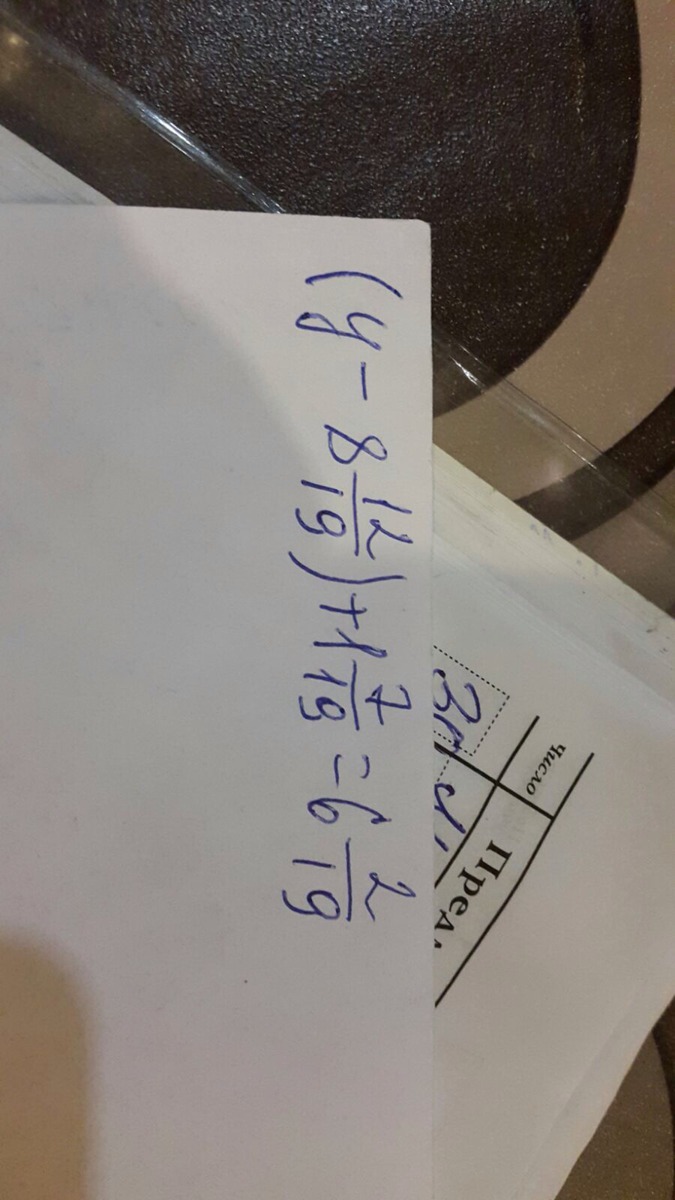 (y - 8 12/19) + 1 7/19 = 6 2/19
Число
Пред